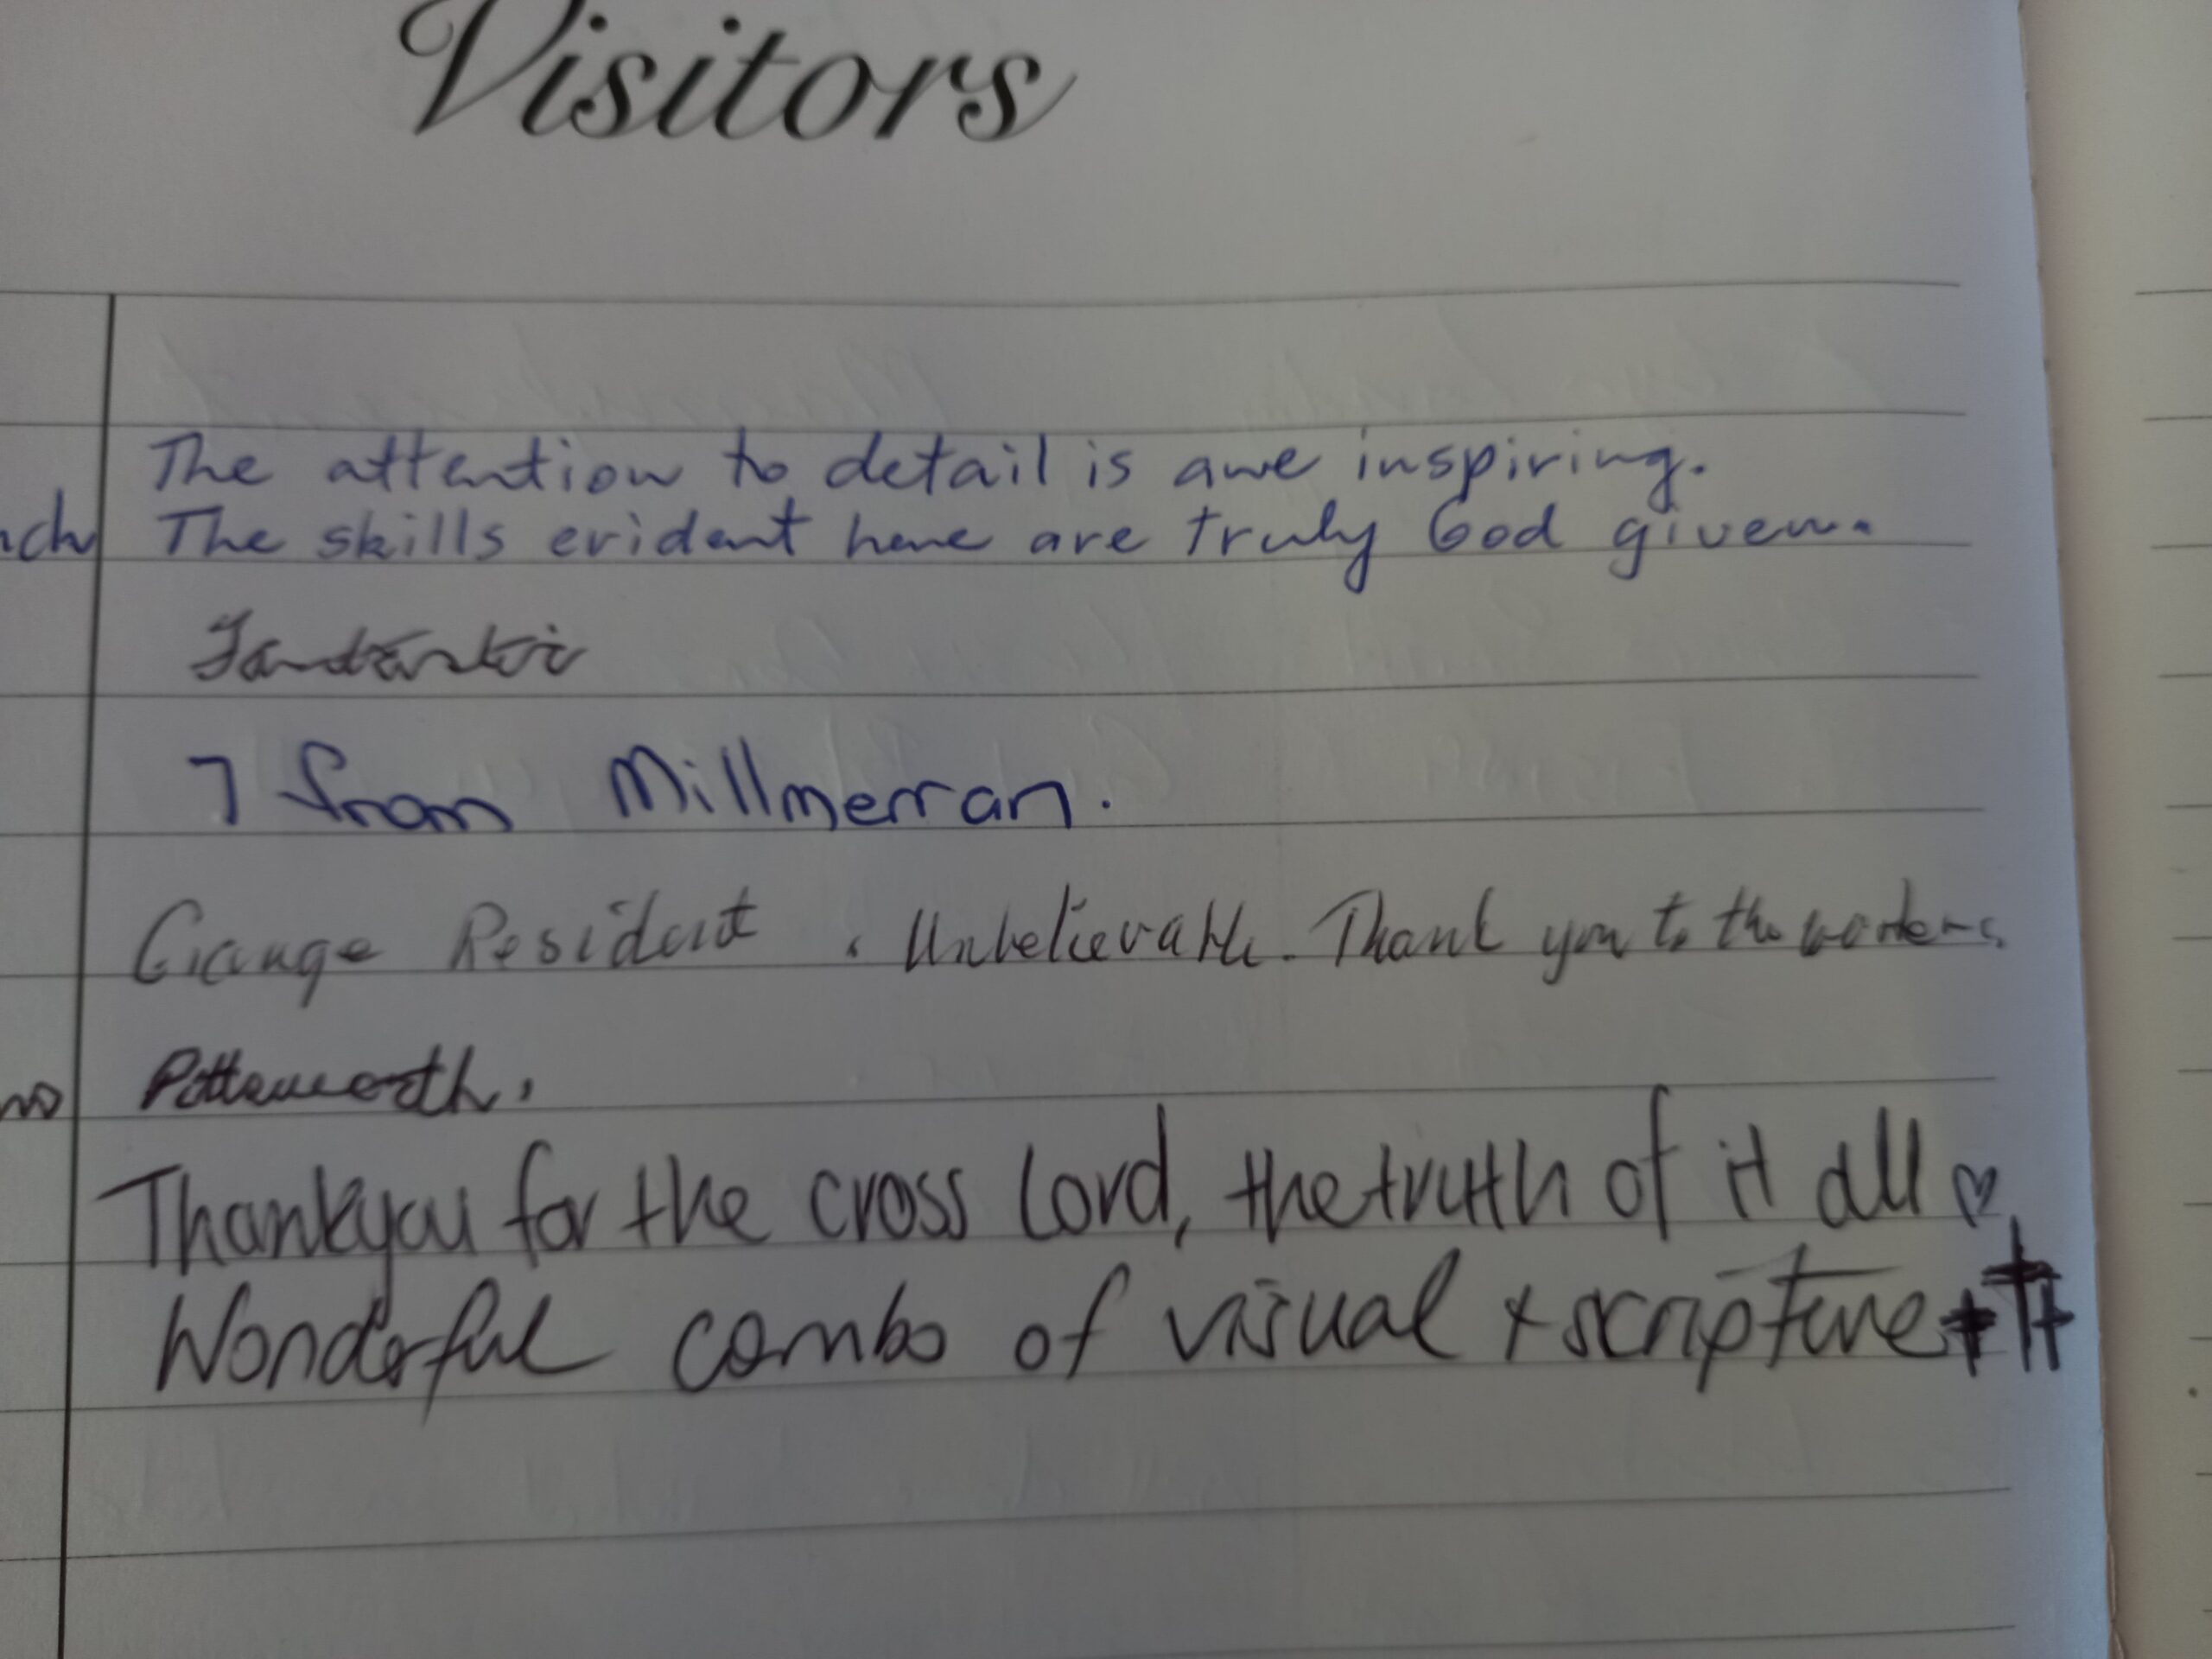 Visitors
The attention to detail is awe inspiring.
The skills evident here are truly God given.
Fantastic
7 from Millmerran.
Grange Resident . Unbelievable. Thank you to the workers.
Thankyou for the cross Lord, the truth of it all ♡
Wonderful combo of visual + scripture